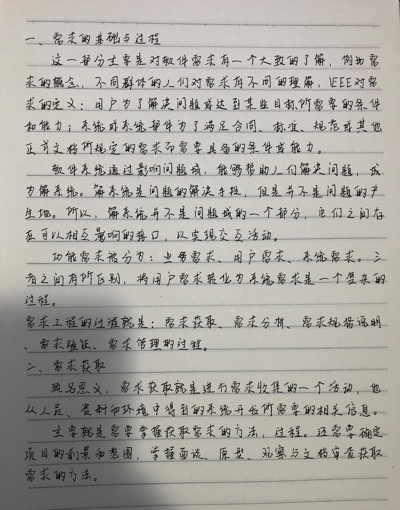 一、需求的基础与过程
这一部分主要是对软件需求有一个大致的了解，例如需
求的概念，不同群体的人们对需求有不同的理解，IEEE对需
求的定义：用户为了解决问题或达到某些目标所需要的条件
和能力；系统或系统部件为了满足合同、标准、规范或其他
正式文档所规定的需求而需要具备的条件或能力。
软件系统通过影响问题域，能够帮助人们解决问题，成
为解系统。解系统是问题的解决手段，但是并不是问题的产
生地。所以，解系统并不是问题域的一个部分，它们之间存
在可以相互影响的接口，以实现交互活动。
功能需求被分为：业务需求、用户需求、系统需求。三
者之间有所区别，将用户需求转化为系统需求是一个复杂的
过程。
需求工程的过程就是：需求获取、需求分析、需求规格说明
、需求验证、需求管理的过程。
二、需求获取
顾名思义，需求获取就是进行需求收集的一个活动，他
从人员、资料和环境中得到的系统开发所需要的相关信息。
主要就是需要掌握获取需求的方法，过程。还需要确定
项目的前景和范围，掌握面谈、原型、观察与文档审查获取
需求的方法。